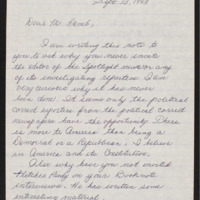 Sept. 13, 1993
Dear Mr. Lamb,
I am writing this note to
you to ask why you never invite
the editor of the Spotlight nor any
of its investigating reporters. I am
very curious why it has never
been done. It seems only the political
correct reporters from the political correct
newspapers have the opportunity. There
is more to America than being a
Democrat or a Republican. I believe
in America and its Constitution.
Also why have you not invited
Fletcher Prouty on your Booknote
interviews. He has written some
interesting material.